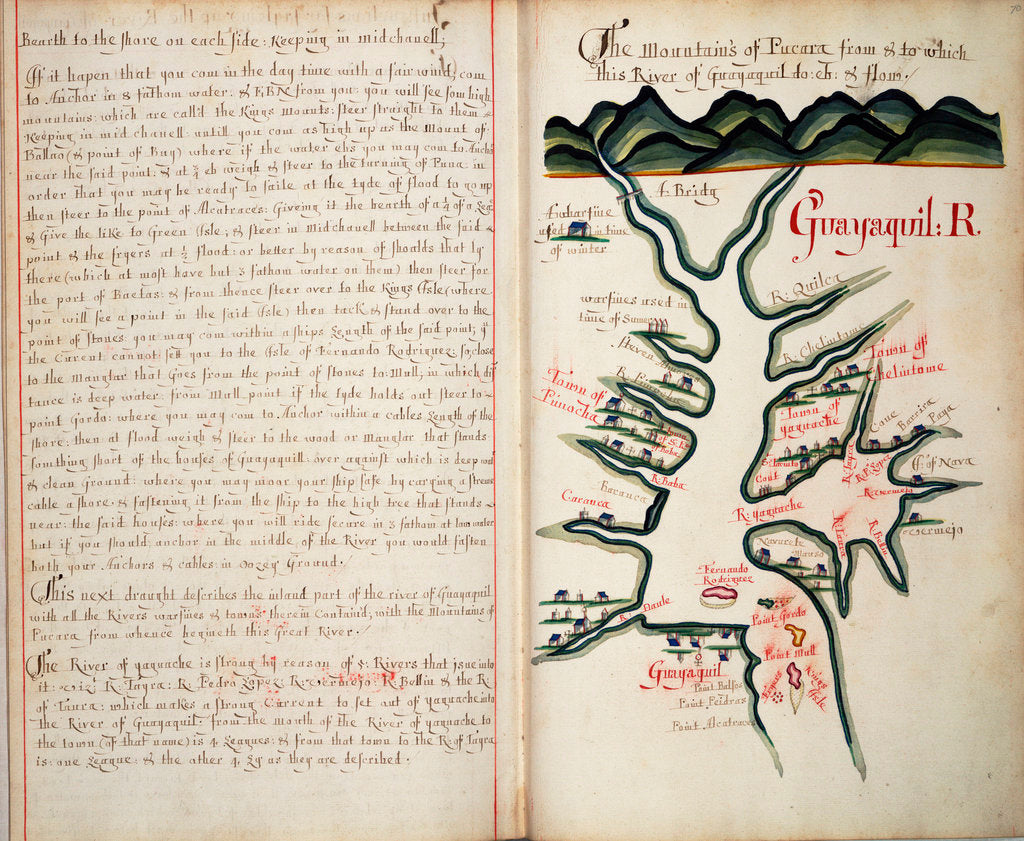 Bearth to the shore on each side: Keeping in midchanell;
If it hapen that you com in the day time with a fair wind, com
to Anchor in 8 fathom water: & EBN from you: you will see som high
mountains which are call'd the Kings mounts: steer straight to them
Keeping in mid chanell: untill you com as high up as the mount of
Ballao (& point of Bay) where if the water ebs you may com to Anchr
near the said point: & at ¾ eb weigh & steer to the turning of Puna: in
order that you may be ready to saile at the tyde of flood to go up
then steer to the point of Alcatraces: Giveing it the bearth of a ¼ of a Leag
& Give the like to Green Isle; & steer in Midchanell between the said
point & the fryers at ½ flood: or better by reason of shoalds that ly
there (which at most have but 3 fathom water on them) then steer for
the port of Baltas: & from thence steer over to the Kings Isle (where
you will see a point in the said Isle) then tack & stand over to the
point of Stones: you may com within a ships Length of the said point; yt
the Carent cannot sett you to the Isle of Fernando Rodriguez: so close
to the Manglar that Goes from the point of stones to: Mull; in which dis
tance is deep water: from Mull point if the tyde holds out steer to
point Gordo: where you may com to Anchor within a cables Length of the
shore: then at flood weigh & steer to the wood or manglar that stands
somthing short of the houses of Guayaquill: over against which is deep watr
& clean Ground: where you may moor your ship safe by carying a streme
cable a shore: & fastening it from the ship to the high tree that stands
near: the said houses: where you will ride secure in 3 fathom at low water
but if you should anchor in the middle of the River you would fasten
both your Anchors & cables in Oozey Ground.
This next draught describes the inland part of the river of Guayaquil
with all the Rivers warsiues & towns therein Containd; with the Mountains of
Pucara from whence begineth this Great River.
The River of yaguache is strong by reason of 5: Rivers that jsue into
it: viz: R: Tayra: R: Pedro Lopez: R: vermejo: R: Bollin & the R:
of Taura: which makes a strong Current to set out of yaguache into
the River of Guayaquil: from the mouth of the River of yaguache to
the town (of that name) is 4 Leagues: & from that town to the R: of Tayra
is: one League: & the other 4 Lg as they are described.
70
The Mountain's of Pucara from & to which
this River of Guayaquil do: eb: & flow
A: Bridg
Guayaquil: R.
used in time
of winter
R: Quilca
warsiues used in
time of Sumer
R: Chelintome
Town of
Chelintome
Town of
Pinocha
Town of
yaguache
Baranca
Caranca
R: Baba
Cont
R: yaguache
R: Tayra
R: P: Lopez
Coue
Barrira
Paya
of Nava
R: vermejo
vermejo
R: Taura
Navarette
Fernando
Rodriguez
R: Daule
Point Gordo
Point Mull
Kings
Isle
Guayaquil
Point Balses
Point Peidras
Point Alcatraces